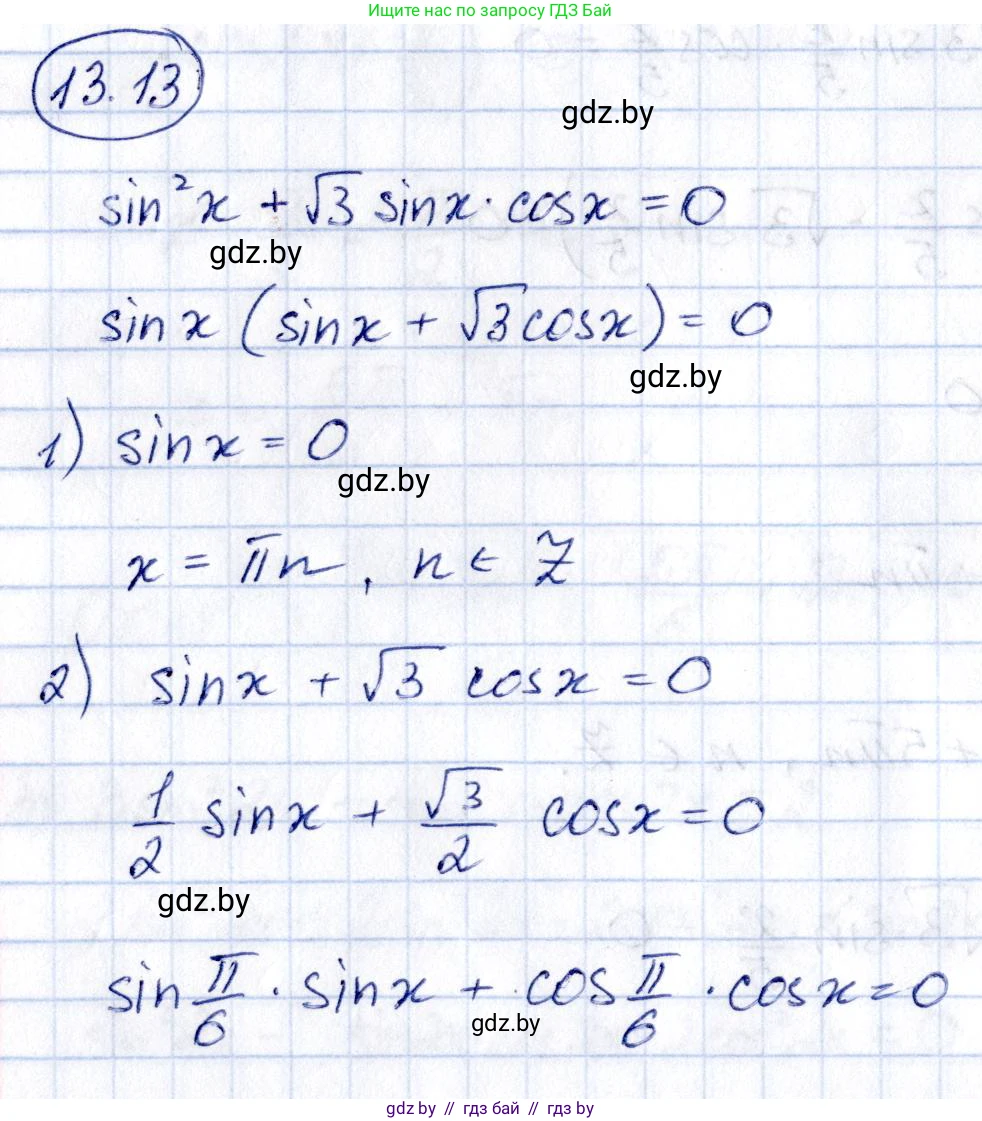 Ищите нас по запросу ГДЗ Бай
13.13
gdz.by
sin²x + √3 sinx · cosx = 0
gdz.by
sinx (sinx + √3cosx) = 0
gdz.by
1) sinx = 0
gdz.by
x = πn, n ∈ Z
2) sinx + √3 cosx = 0
1/2 sinx + √3/2 cosx = 0
gdz.by
sin π/6 · sinx + cos π/6 · cosx = 0
gdz.by
gdz by // гдз бай // гдз by